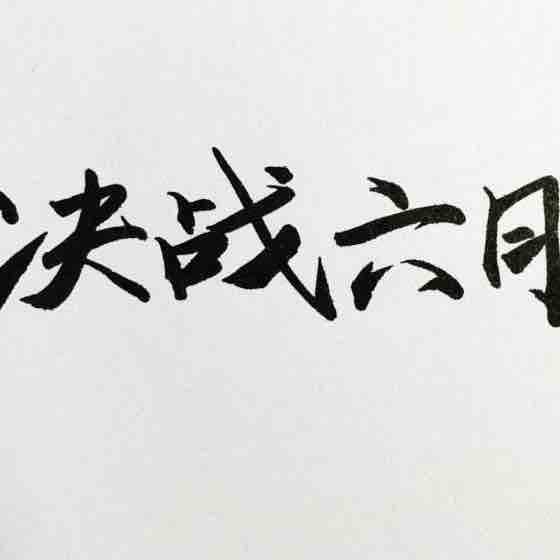 决战六月